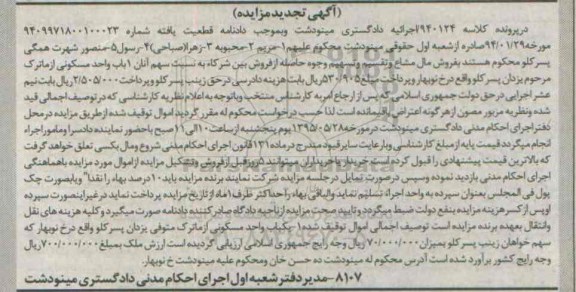 (آگهی تجدید مزایده)
درپرونده کلاسه ۹۴۰۱۲۴/اجرائیه دادگستری مینودشت وبموجب دادنامه قطعیت یافته شماره ۹۴۰۹۹۷۱۸۰۰۱۰۰۰۲۳
مورخه۹۴/۰۱/۲۹صادره ازشعبه اول حقوقی مینودشت محکوم علیهم۱-مریم ۲-محبوبه ۳-زهرا(صباحی)۴-رسول۵-منصور شهرت همگی
پسرکلو محکوم هستند بفروش مال مشاع وتقسیم وتسهیم وجوه حاصله ازفروش بین شرکاء به نسبت سهم آنان ۱باب واحد مسکونی ازماترک
مرحوم یزدان پسرکلو واقع درخ نوبهار وپرداخت مبلغ۵۳۰/۹۰۵ریال بابت هزینه دادرسی درحق زینب پسرکلو وپرداخت۲/۵۰۵/۰۰۰ریال بابت نیم
عشر اجرایی درحق دولت جمهوری اسلامی که پس از ارجاع امر به کارشناس منتخب وباتوجه به اعلام نظریه کارشناسی که درتوصیف اجمالی قید
شده ونظریه مزبور مصون ازهرگونه اعتراض باقیمانده است لذا حسب درخواست محکوم له مقرر گردید اموال توقیف شده ازطریق مزایده درمحل
دفتراجرای احکام مدنی دادگستری مینودشت درمورخه۱۳۹۵/۰۵/۲۸ یوم پنجشنبه ازساعت۱۰الی۱۱صبح باحضور نماینده دادسرا وماموراجراء
انجام میگردد قیمت پایه ازمبلغ کارشناسی وبارعایت سایرقیود مندرج درماده۱۳۱قانون اجرای احکام مدنی شروع ومال بکسی تعلق خواهد گرفت
که بالاترین قیمت پیشنهادی را قبول کرده است خریدار یاخریداران میتوانند ۵روزقبل ازفروش وتشکیل مزایده ازاموال مورد مزایده باهماهنگی
اجرای احکام مدنی بازدید نموده وسپس درصورت تمایل درجلسه مزایده شرکت نمایند برنده مزایده باید ۱۰درصد بهاء را نقدا" ویابصورت چک
پول فی المجلس بعنوان سپرده به واحد اجراء تسلیم نماید والباقی بهاء راحداکثر ظرف ۱ماه ازتاریخ مزایده پرداخت نماید درغیراینصورت سپرده
اوپس ازکسر هزینه مزایده بنفع دولت ضبط میگردد وتایید صحت مزایده ازناحیه دادگاه صادرکننده دادنامه صورت میگیرد وکلیه هزینه های نقل
وانتقال بعهده برنده مزایده است توصیف اجمالی اموال توقیف شده۱-یکباب واحد مسکونی ازماترک متوفی یزدان پسرکلو واقع درخ نوبهار که
سهم خواهان زینب پسرکلو بمیزان ۷۰/۰۰۰/۰۰۰ ریال وجه رایج جمهوری اسلامی ارزیابی گردیده است ارزش ملک بمبلغ ۷۰۰/۰۰۰/۰۰۰ریال
وجه رایج کشور برآورد شده است آدرس محکوم له مینودشت ده حسن خان ومحکوم علیه مینودشت خ نوبهار.
۸۱۰۷-مدیر دفتر شعبه اول اجرای احکام مدنی دادگستری مینودشت